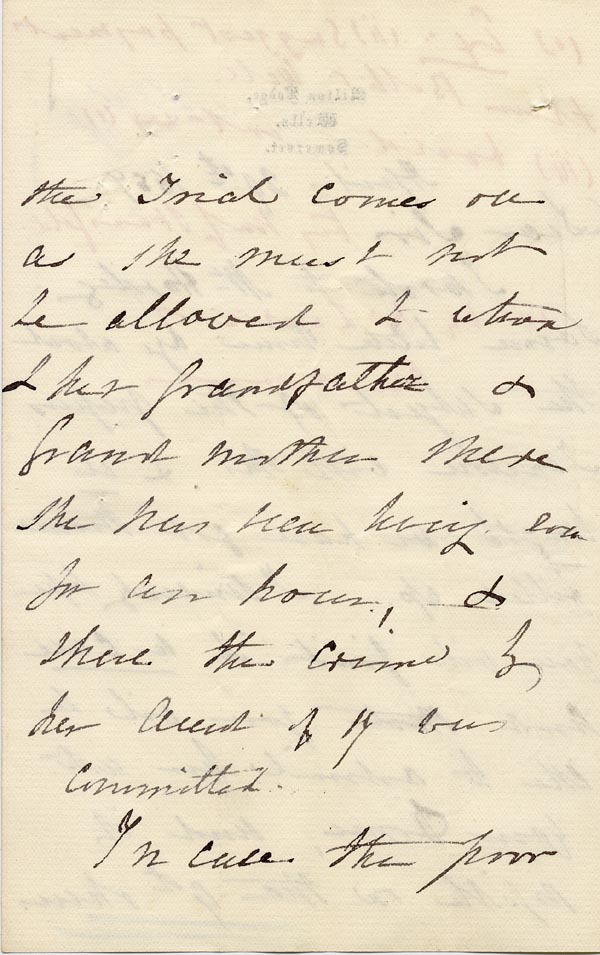 the Trial comes on
as she must not
be allowed to return
to her Grandfather &
Grand mother where
she has been living even
for an hour, &
where the crime by
her Uncle of 17 was
committed.
In case the poor